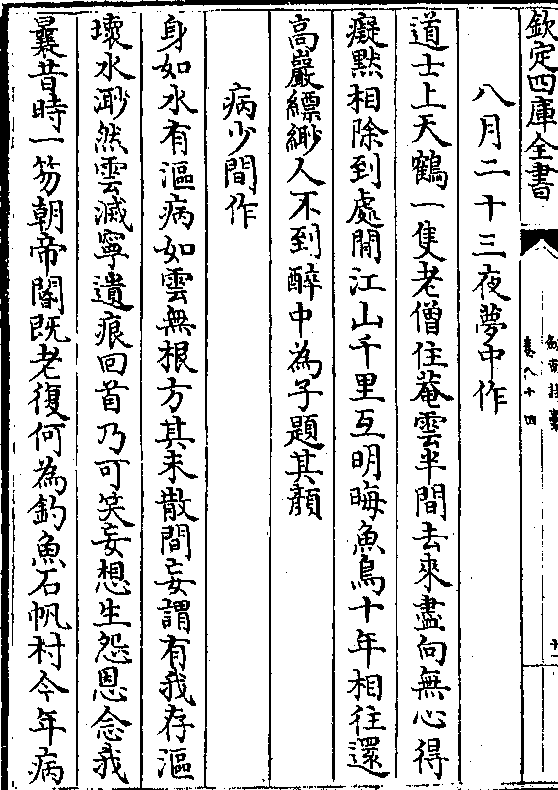 欽定四庫全書
八月二十三夜夢中作
道士上天鶴一隻老僧住菴雲半間去來盡向無心得
癡黙相除到處閒江山千里互明晦魚鳥十年相往還
高巖縹緲人不到醉中為子題其顔
病少間作
身如水有漚病如雲無根方其未散間妄謂有我存漚
壞水渺然雲滅寧遺痕回首乃可笑妄想生怨恩念我
曩昔時一笏朝帝閽既老復何為釣魚石帆村今年病